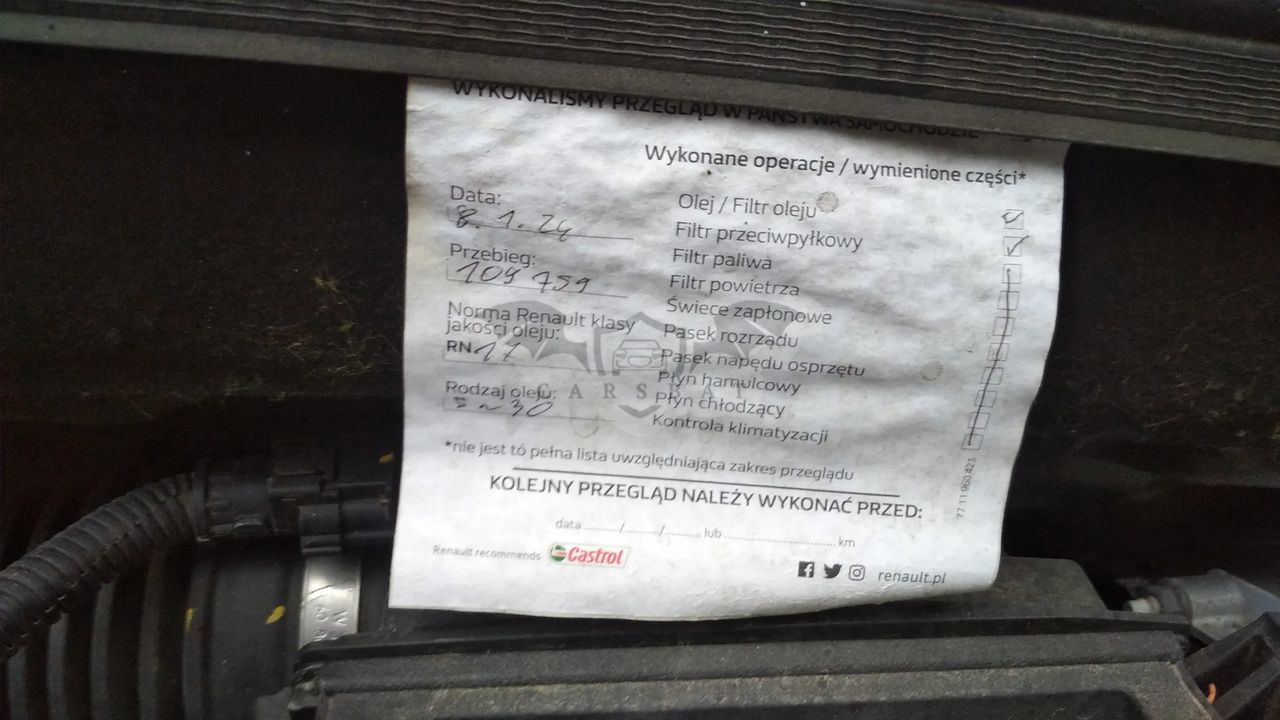 WYKONALIŚMY PRZEGLĄD W PAŃSTWA SAMOCHODZIE
Wykonane operacje / wymienione części*
Data:
8.1.24
Przebieg:
109 759
Norma Renault klasy
jakości oleju:
RN 17
Rodzaj oleju:
30
Olej / Filtr oleju
Filtr przeciwpyłkowy
Filtr paliwa
Filtr powietrza
Świece zapłonowe
Pasek rozrządu
Pasek napędu osprzętu
Płyn hamulcowy
Płyn chłodzący
Kontrola klimatyzacji
CARSBAT
*nie jest tó pełna lista uwzględniająca zakres przeglądu
77 11 960 423
KOLEJNY PRZEGLĄD NALEŻY WYKONAĆ PRZED:
data ........../........../.......... lub .............................. km
Renault recommends Castrol
renault.pl